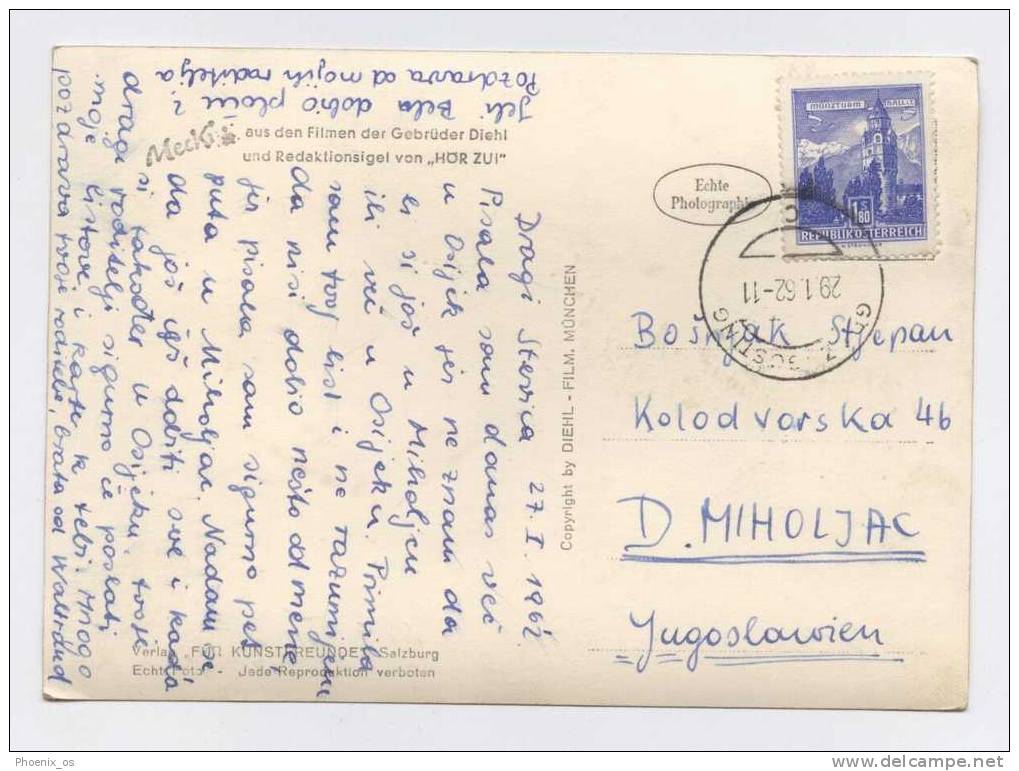 Dragi Stevica 27. I. 1962
Pisala sam danas već
u Osijek jer ne znam da
li si još u Miholjcu
ili već u Osijeku. Primila
sam tvoj list i ne razumijem
da nisi dobio nešto od mene
jer pisala sam sigurno pet
puta u Miholjac. Nadam se
da još ićeš dobiti sve i kada
si također u Osijeku. tvoje
dragi roditelji sigurno će poslati
moje listove i karte k tebi. Mnogo
pozdrava tvoje roditelje, brata od Waltrud
Jeli Bela dobio ploču?
Pozdrava od mojih roditelja
Mecki
aus den Filmen der Gebrüder Diehl
und Redaktionsigel von „HÖR ZU!"
Verlag „FÜR KUNSTFREUNDE" Salzburg
Echt Foto - Jede Reproduktion verboten
Copyright by DIEHL - FILM. MÜNCHEN
Echte
Photographie
MÜNZTURM
REPUBLIK ÖSTERREICH
S 1.80
29.1.62-11
GÖSTING
Bošnjak Stjepan
Kolodvorska 46
D. MIHOLJAC
Jugoslawien
Phoenix_os